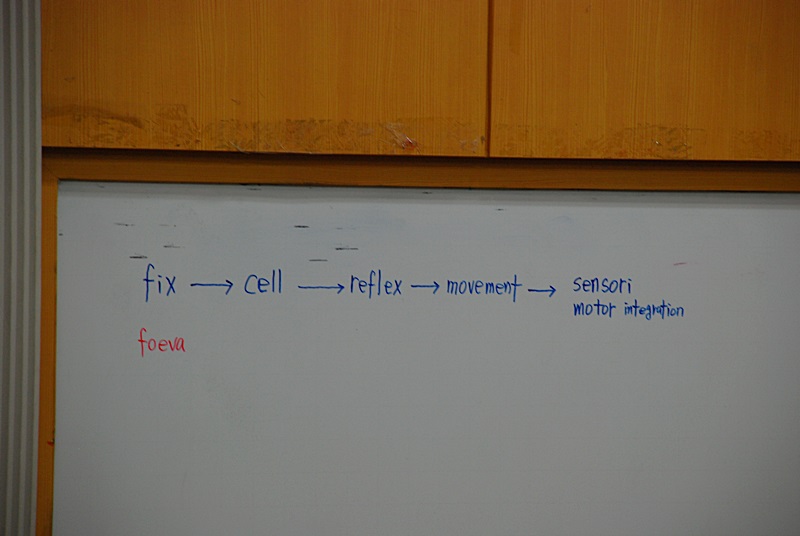 fix → cell → reflex → movement → sensori
motor integration
foeva